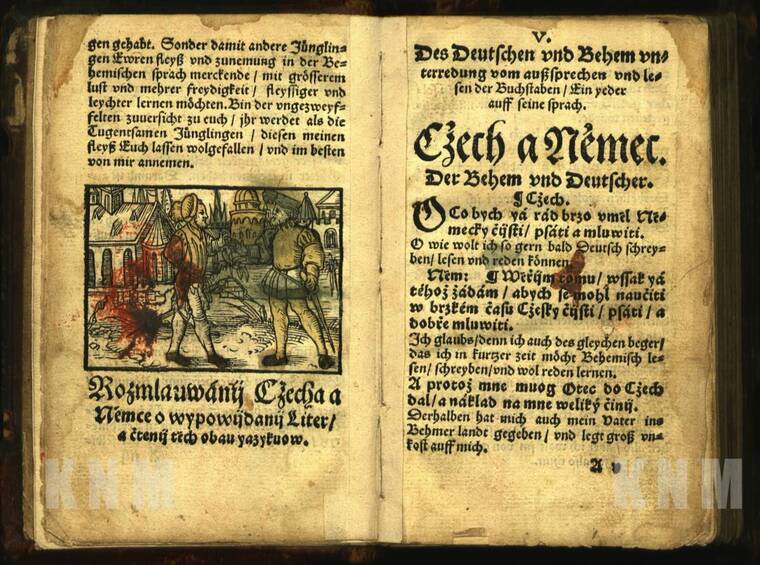 gen gehabt. Sonder damit andere Jünglin-
gen Ewren fleyß vnd zunemung in der Be-
hemischen sprach merckende / mit grösserem
lust vnd mehrer freydigkeit / fleyssiger vnd
leychter lernen möchten. Bin der vngezweyf-
felten zuuersicht zu euch / jhr werdet als die
Tugentsamen Jünglingen / diesen meinen
fleyß Euch lassen wolgefallen / vnd im besten
von mir annemen.
Rozmlauwánij Cžecha a
Němce o wypowijdanij Liter /
a čtenij těch obau yazykuow.
V.
Des Deutschen vnd Behem vn-
terredung vom außsprechen vnd le-
sen der Buchstaben / Ein yeder
auff seine sprach.
Cžech a Němec.
Der Behem vnd Deutscher.
¶ Cžech.
O Co bych yá rád brzo vměl Ně-
mecky čijsti / psáti a mluwiti.
O wie wolt ich so gern bald Deutsch schrey-
ben / lesen vnd reden können
Něm: ¶ Wěřijm tomu / wssak yá
téhož žádám / abych se mohl naučiti
w brzkém času Cžesky čijsti / psáti / a
dobře mluwiti.
Ich glaubs / denn ich auch des gleychen beger /
das ich in kurtzer zeit möcht Behemisch le-
sen / schreyben / vnd wol reden lernen.
A protož mne muog Otec do Čech
dal / a náklad na mne weliký činij.
Derhalben hat mich auch mein Vater ins
Behmer landt gegeben / vnd legt groß vn-
kost auff mich.
A v
KNM
KNM